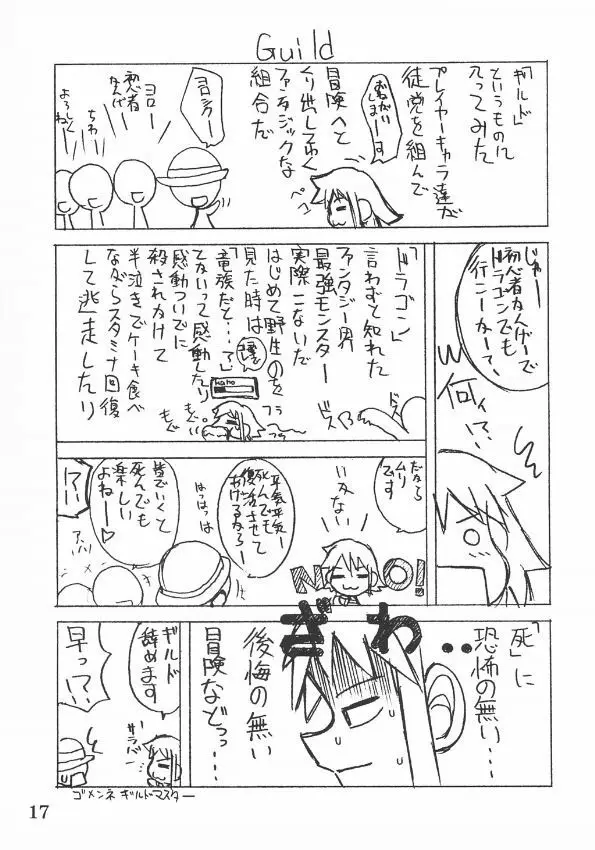 Guild
「ギルド」
というものに
入ってみた
プレイヤーキャラ達が
徒党を組んで
冒険へと
くり出してゆく
ファンタジックな
組合だ
おねがい
しまーす
ペコ
ヨロシクー
ヨロー
初心者
なんだー
ちわ
よろしく
ね
じゃー
初心者なんで
ドラゴンでも
行こーかー?
何ィ!?
「ドラゴン」
言わずと知れた
ファンタジー界
最強モンスター
実際こないだ
はじめて野生のを
見た時は
「竜族だと…?」
てないって感動したり
感動ついでに
殺されかけて
半泣きでケーキ食べ
ながらスタミナ回復
して逃走したり
フラ
フラ
もぐ
もぐ
ドス
ドス
だから
ムリ
です
いえない
NO!
平気平気ー
死んでも
復活させて
あげるからー
はっはっは
皆でいくと
死んでも
楽しい
よねー♡
アハハ
!?
「死」に
恐怖の無い…
ざわ‥
後悔の無い
冒険などっ…
ギルド
辞めます
サラバ!
早っ!?
ゴメンネ ギルドマスター
17